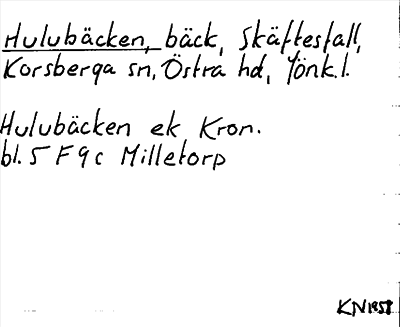 Hulubäcken, bäck, Skäftesfall,
Korsberga sn, Östra hd, Jönk.l.
Hulubäcken ek Kron.
bl. 5 F 9 c Milletorp
KN 1958